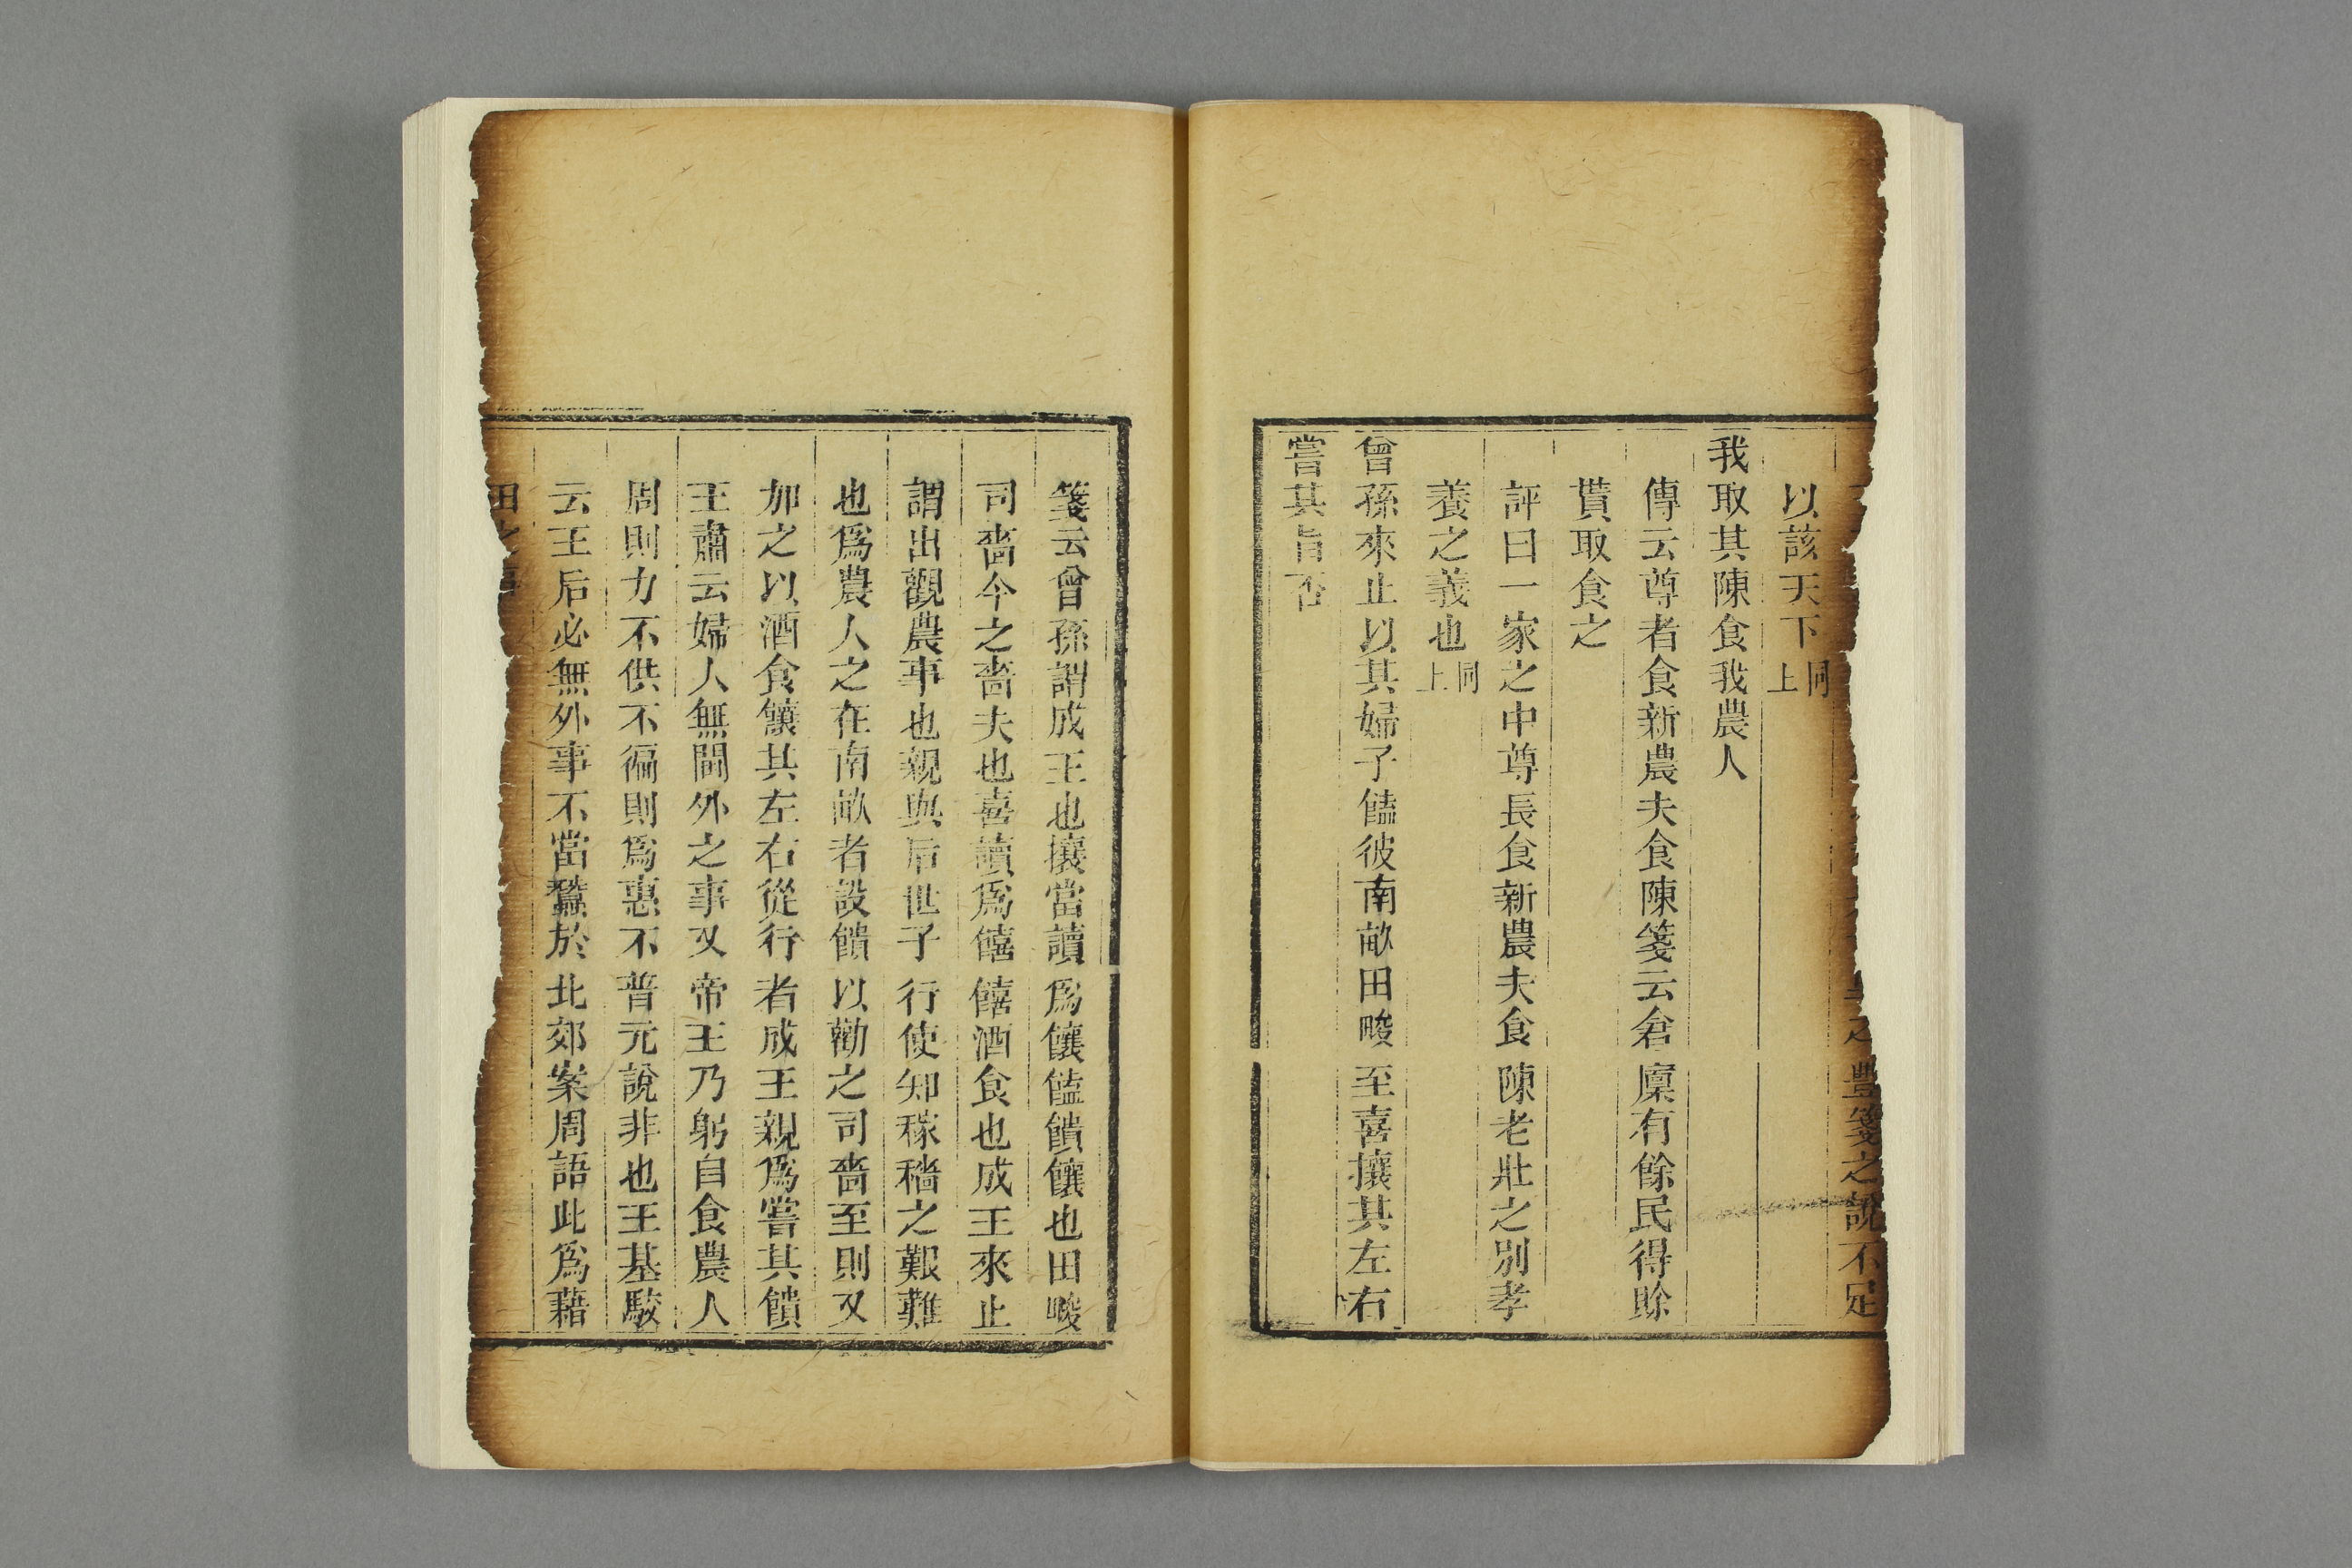 之豐箋之說不足
以該天下同上
我取其陳食我農人
傳云尊者食新農夫食陳箋云倉廩有餘民得賒
貰取食之
評曰一家之中尊長食新農夫食陳老壯之別孝
養之義也同上
曾孫來止以其婦子饁彼南畝田畯至喜攘其左右
嘗其旨否
箋云曾孫謂成王也攘當讀爲饟饁饋饟也田畯
司嗇今之嗇夫也喜讀爲饎饎酒食也成王來止
謂出觀農事也親與后世子行使知稼穡之艱難
也爲農人之在南畝者設饋以勸之司嗇至則又
加之以酒食饟其左右從行者成王親爲嘗其饋
王肅云婦人無閫外之事又帝王乃躬自食農人
周則力不供不徧則爲惠不普元說非也王基駮
云王后必無外事不當蠶於北郊案周語此爲藉
田之事